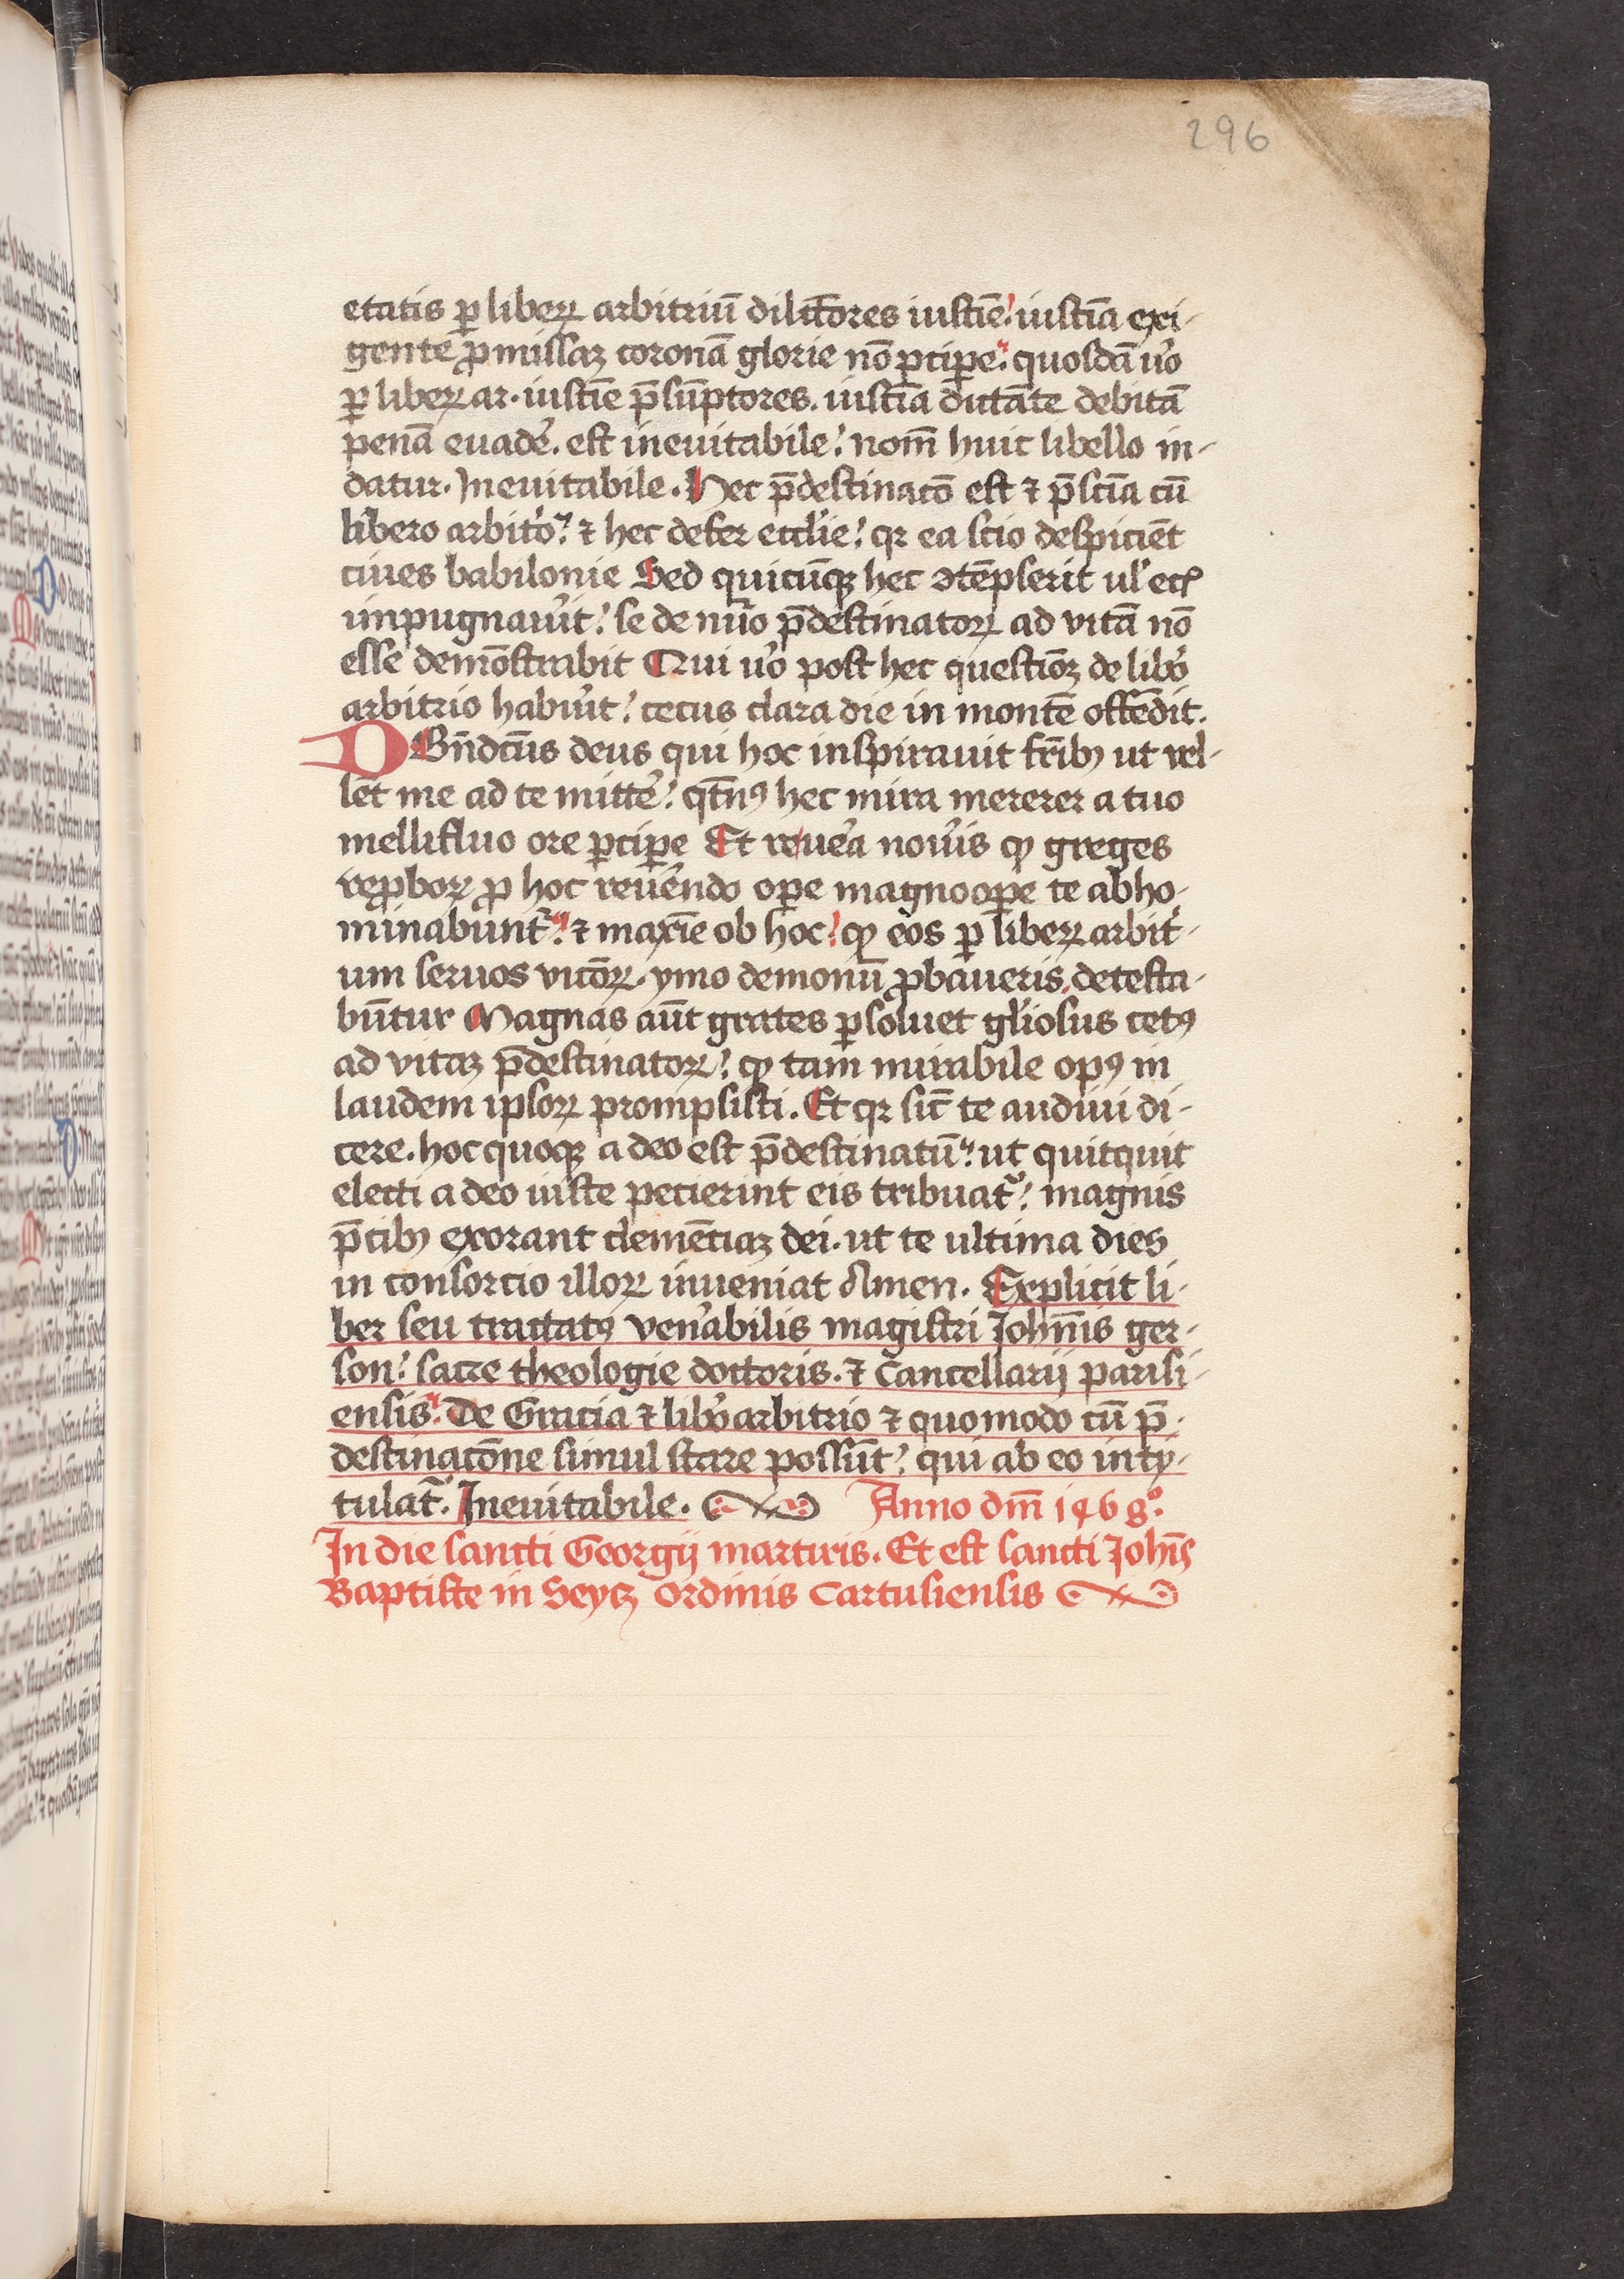 296
etatis ꝑ libeꝝ arbitriū dilcōres iusticīe iusticīa exi-
gente ꝓmissaꝫ coronā glorie nō ꝑciꝑe quosdā ũo
ꝑ libeꝝ ar. iusticīe p̄sūptores. iusticīa dictāte debitā
penā euadē. est ineuitabile nom̄ huic libello in-
datur. Ineuitabile. Hec p̄destinacō est ⁊ p̄sciīa cū
libero arbitõ ⁊ hec defer ecclīe qꝛ ea scio despiciēt
ciues babilonie Sed quicūqꝫ hec ꝯtēpserit ul̉ ecꝭ
impugnauīt se de nũo p̄destinatoꝝ ad vitā nō
esse demōstrabit Qui ũo post hec questiōꝫ de libõ
arbitrio habuīt cecus clara die in montē offēdit.
D Bn̄dcūs deus qui hoc inspirauit fr̄ibꝫ ut vel-
let me ad te mittē qt̄nꝰ hec mira mererer a tuo
mellifluo ore ꝑciꝑe Et reuēa nouīs ꝙ greges
reꝓboꝝ ꝓ hoc reuēndo oꝑe magnooꝑe te abho-
minabunt᷑ ⁊ maxīe ob hoc ꝙ eos ꝑ libeꝝ arbit̉-
um seruos vicōꝝ. ymo demoniū ꝓbaueris detesta-
būtur Magnas aūt grates ꝑsoluet gl̉iosus cetꝰ
ad vitaꝫ p̄destinatoꝝ ꝙ tam mirabile opꝰ in
laudem ipsoꝝ prompsisti. Et qꝛ sic̄ te audiui di-
cere. hoc quoqꝫ a deo est p̄destinatū ut quitquit
electi a deo iuste pecierint eis tribuat᷑ magnis
p̄cibꝫ exorant clemēciaꝫ dei. ut te ultima dies
in consorcio illoꝝ inueniat Amen. Explicit li-
ber seu tractatꝰ ven̉abilis magistri Johān̄is ger-
son sacre theologie doctoris. ⁊ Cancellarij parisi-
ensis. De Gracia ⁊ libõ arbitrio ⁊ quomodo cū p̄-
destinacōne simul stare possūt qui ab eo inty-
tulat᷑. Ineuitabile. Anno dm̄ 1468°
In die sancti Georgij martiris. Et est sancti Johīs
Baptiste in Seytꝫ Ordinis Cartusiensis